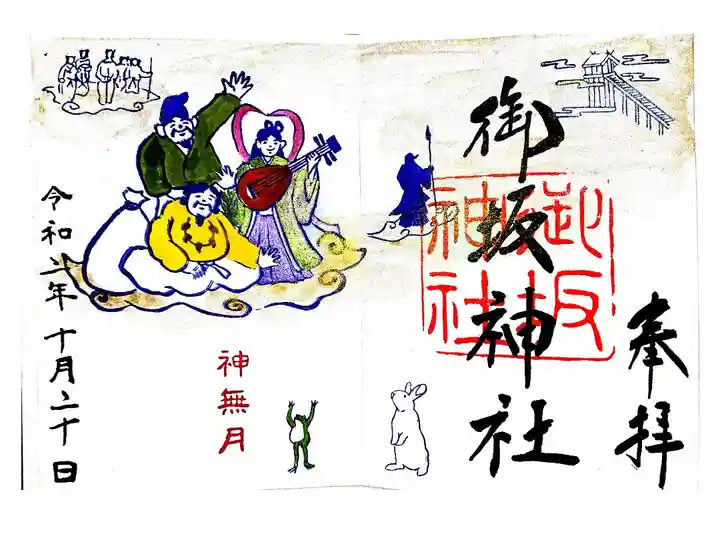 奉拝
御坂神社
御坂神社
神無月
令和二年 十月二十日